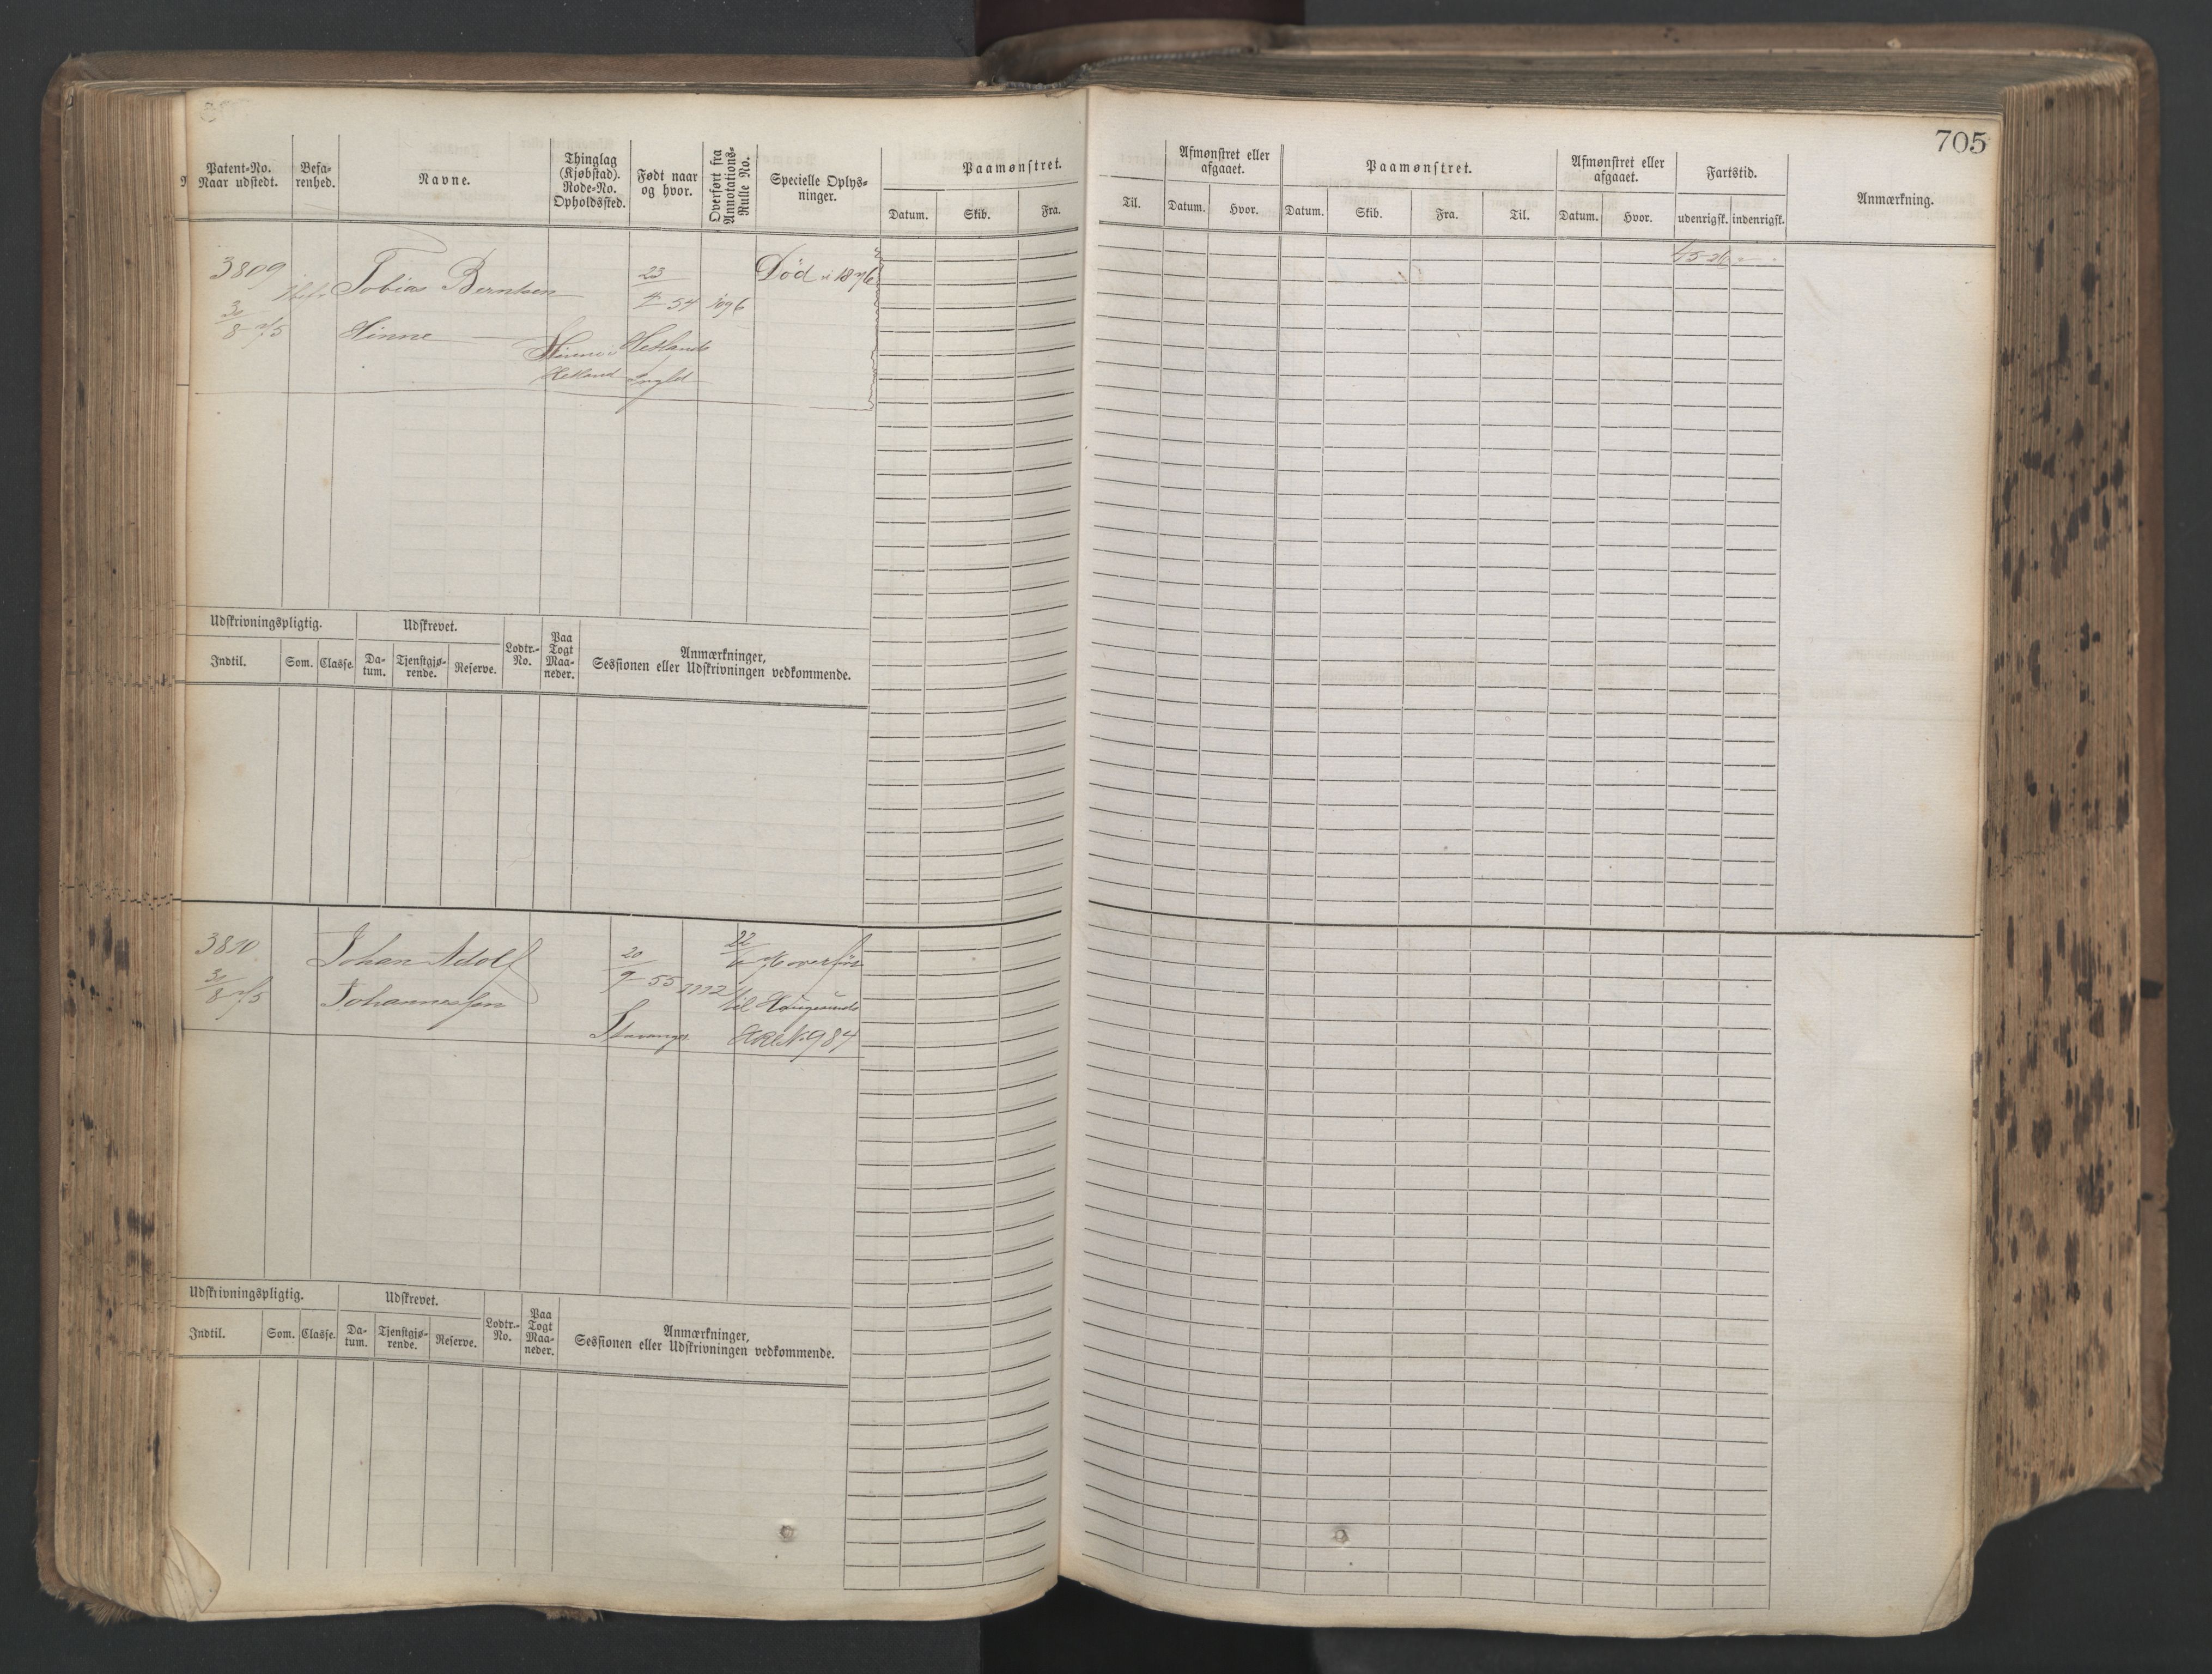 705
Patent-No.
Naar udstedt.
Befa-
renhed.
Navne.
Thinglag
(Kjøbstad).
Rode-No.
Opholdssted.
Født naar
og hvor.
Overført fra
Annotations-
Rulle No.
Specielle Oplys-
ninger.
Paamønstret.
Datum.
Skib.
Fra.
Til.
Afmønstret eller
afgaaet.
Datum.
Hvor.
Paamønstret.
Datum.
Skib.
Fra.
Til.
Afmønstret eller
afgaaet.
Datum.
Hvor.
Fartstid.
udenrigsk.
indenrigsk.
Anmærkning.
3809
Tobias Berntsen
23
4 54
1096
Død i 1876
30
8 75
Hinne
Hinne i Hetland
Hetland
Udskrivningspligtig.
Indtil.
Som.
Classe.
Udskrevet.
Da-
tum.
Tjenstgjø-
rende.
Reserve.
Lodtr.-
No.
Paa
Togt
Maa-
neder.
Anmærkninger,
Sessionen eller Udskrivningen vedkommende.
3810
Johan Adolf
20
9 55
1112
22
6 76 overført
30
8 75
Johannessen
til Haugesunds
Stavanger
HRl N. 984
Udskrivningspligtig.
Indtil.
Som.
Classe.
Udskrevet.
Da-
tum.
Tjenstgjø-
rende.
Reserve.
Lodtr.-
No.
Paa
Togt
Maa-
neder.
Anmærkninger,
Sessionen eller Udskrivningen vedkommende.